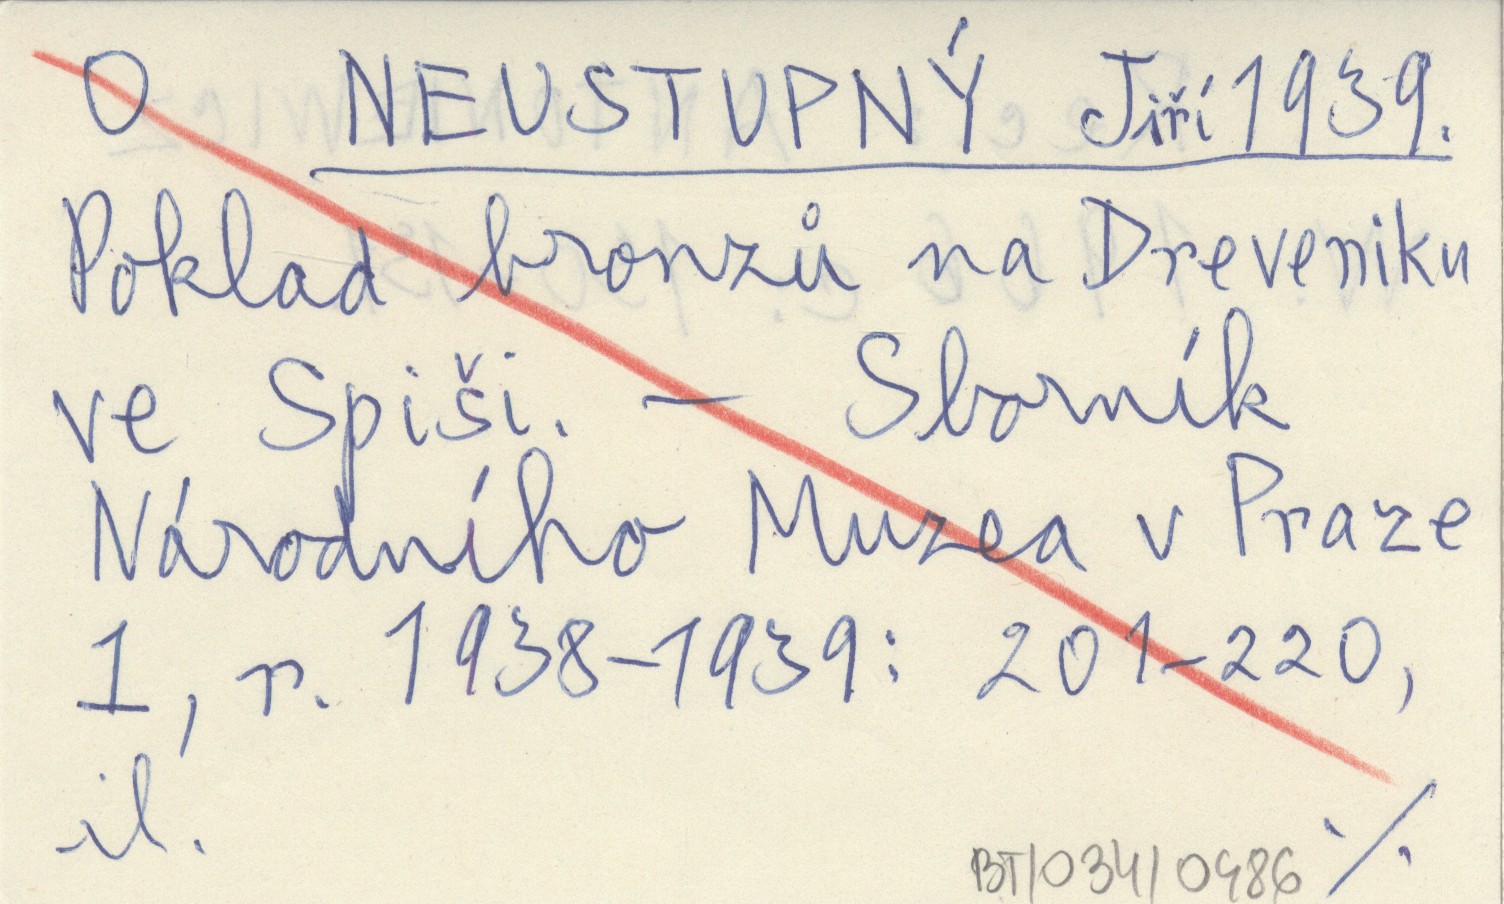 O NEUSTUPNÝ Jiří 1939.
Poklad bronzů na Dreveniku
ve Spiši. — Sborník
Národního Muzea v Praze
1, r. 1938-1939: 201-220,
il.
BT/034/0486 ./.